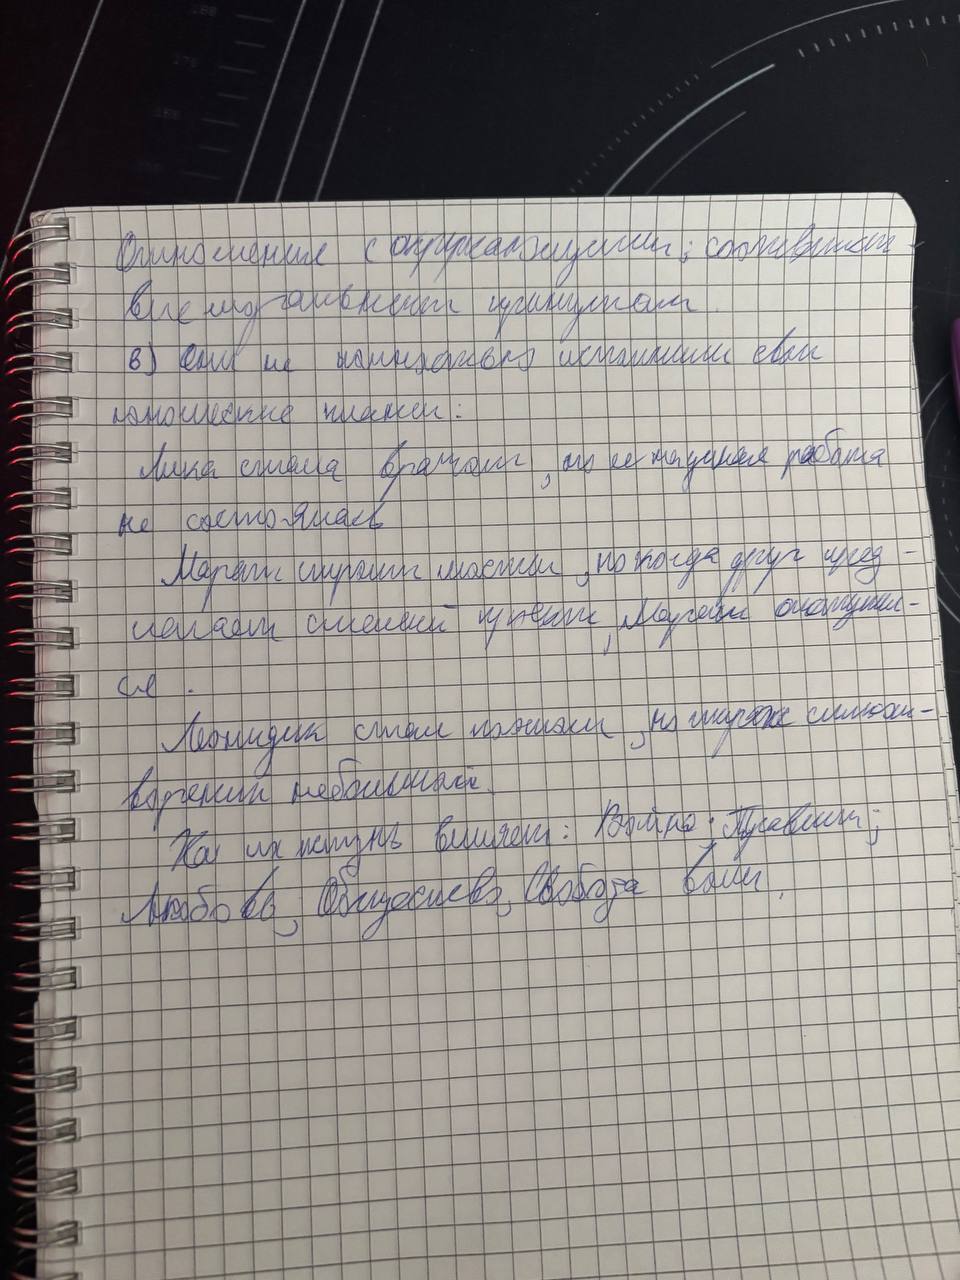 Отношения с окружающими; соответствие
моральным принципам.
в) Они не полностью исполнили свои
юношеские планы:
Лика стала врачом, но научная работа
не состоялась
Марат строит мосты, но когда друг пред-
лагает смелый проект, Марат отступил-
ся.
Леонидик стал поэтом, но тираж стихот-
ворений небольшой.
На их жизнь влияет: Война; Травмы;
Любовь; Общество; Свобода воли.